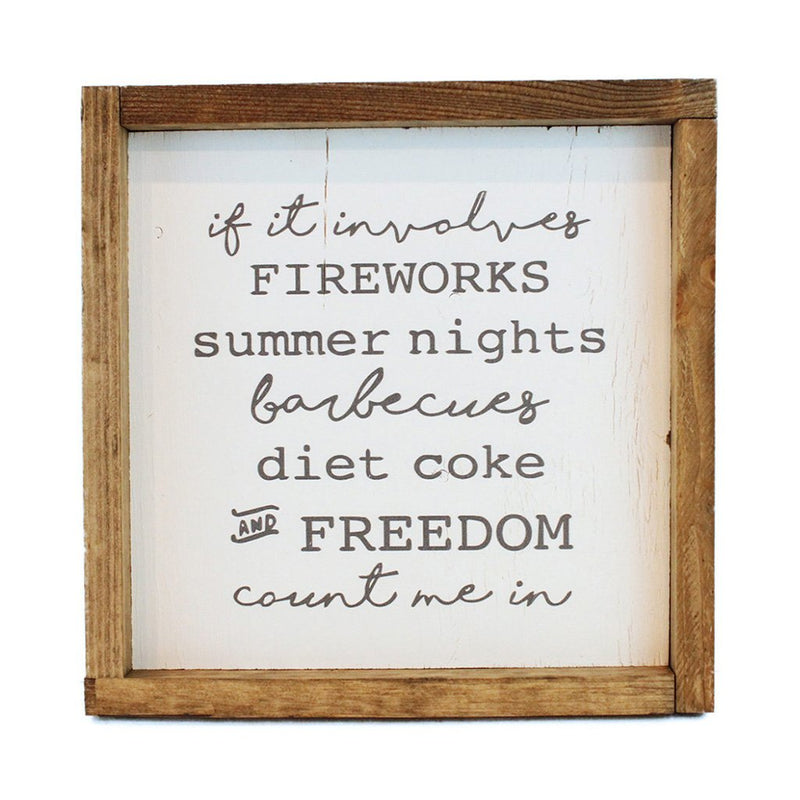 if it involves
FIREWORKS
summer nights
barbecues
diet coke
AND FREEDOM
count me in